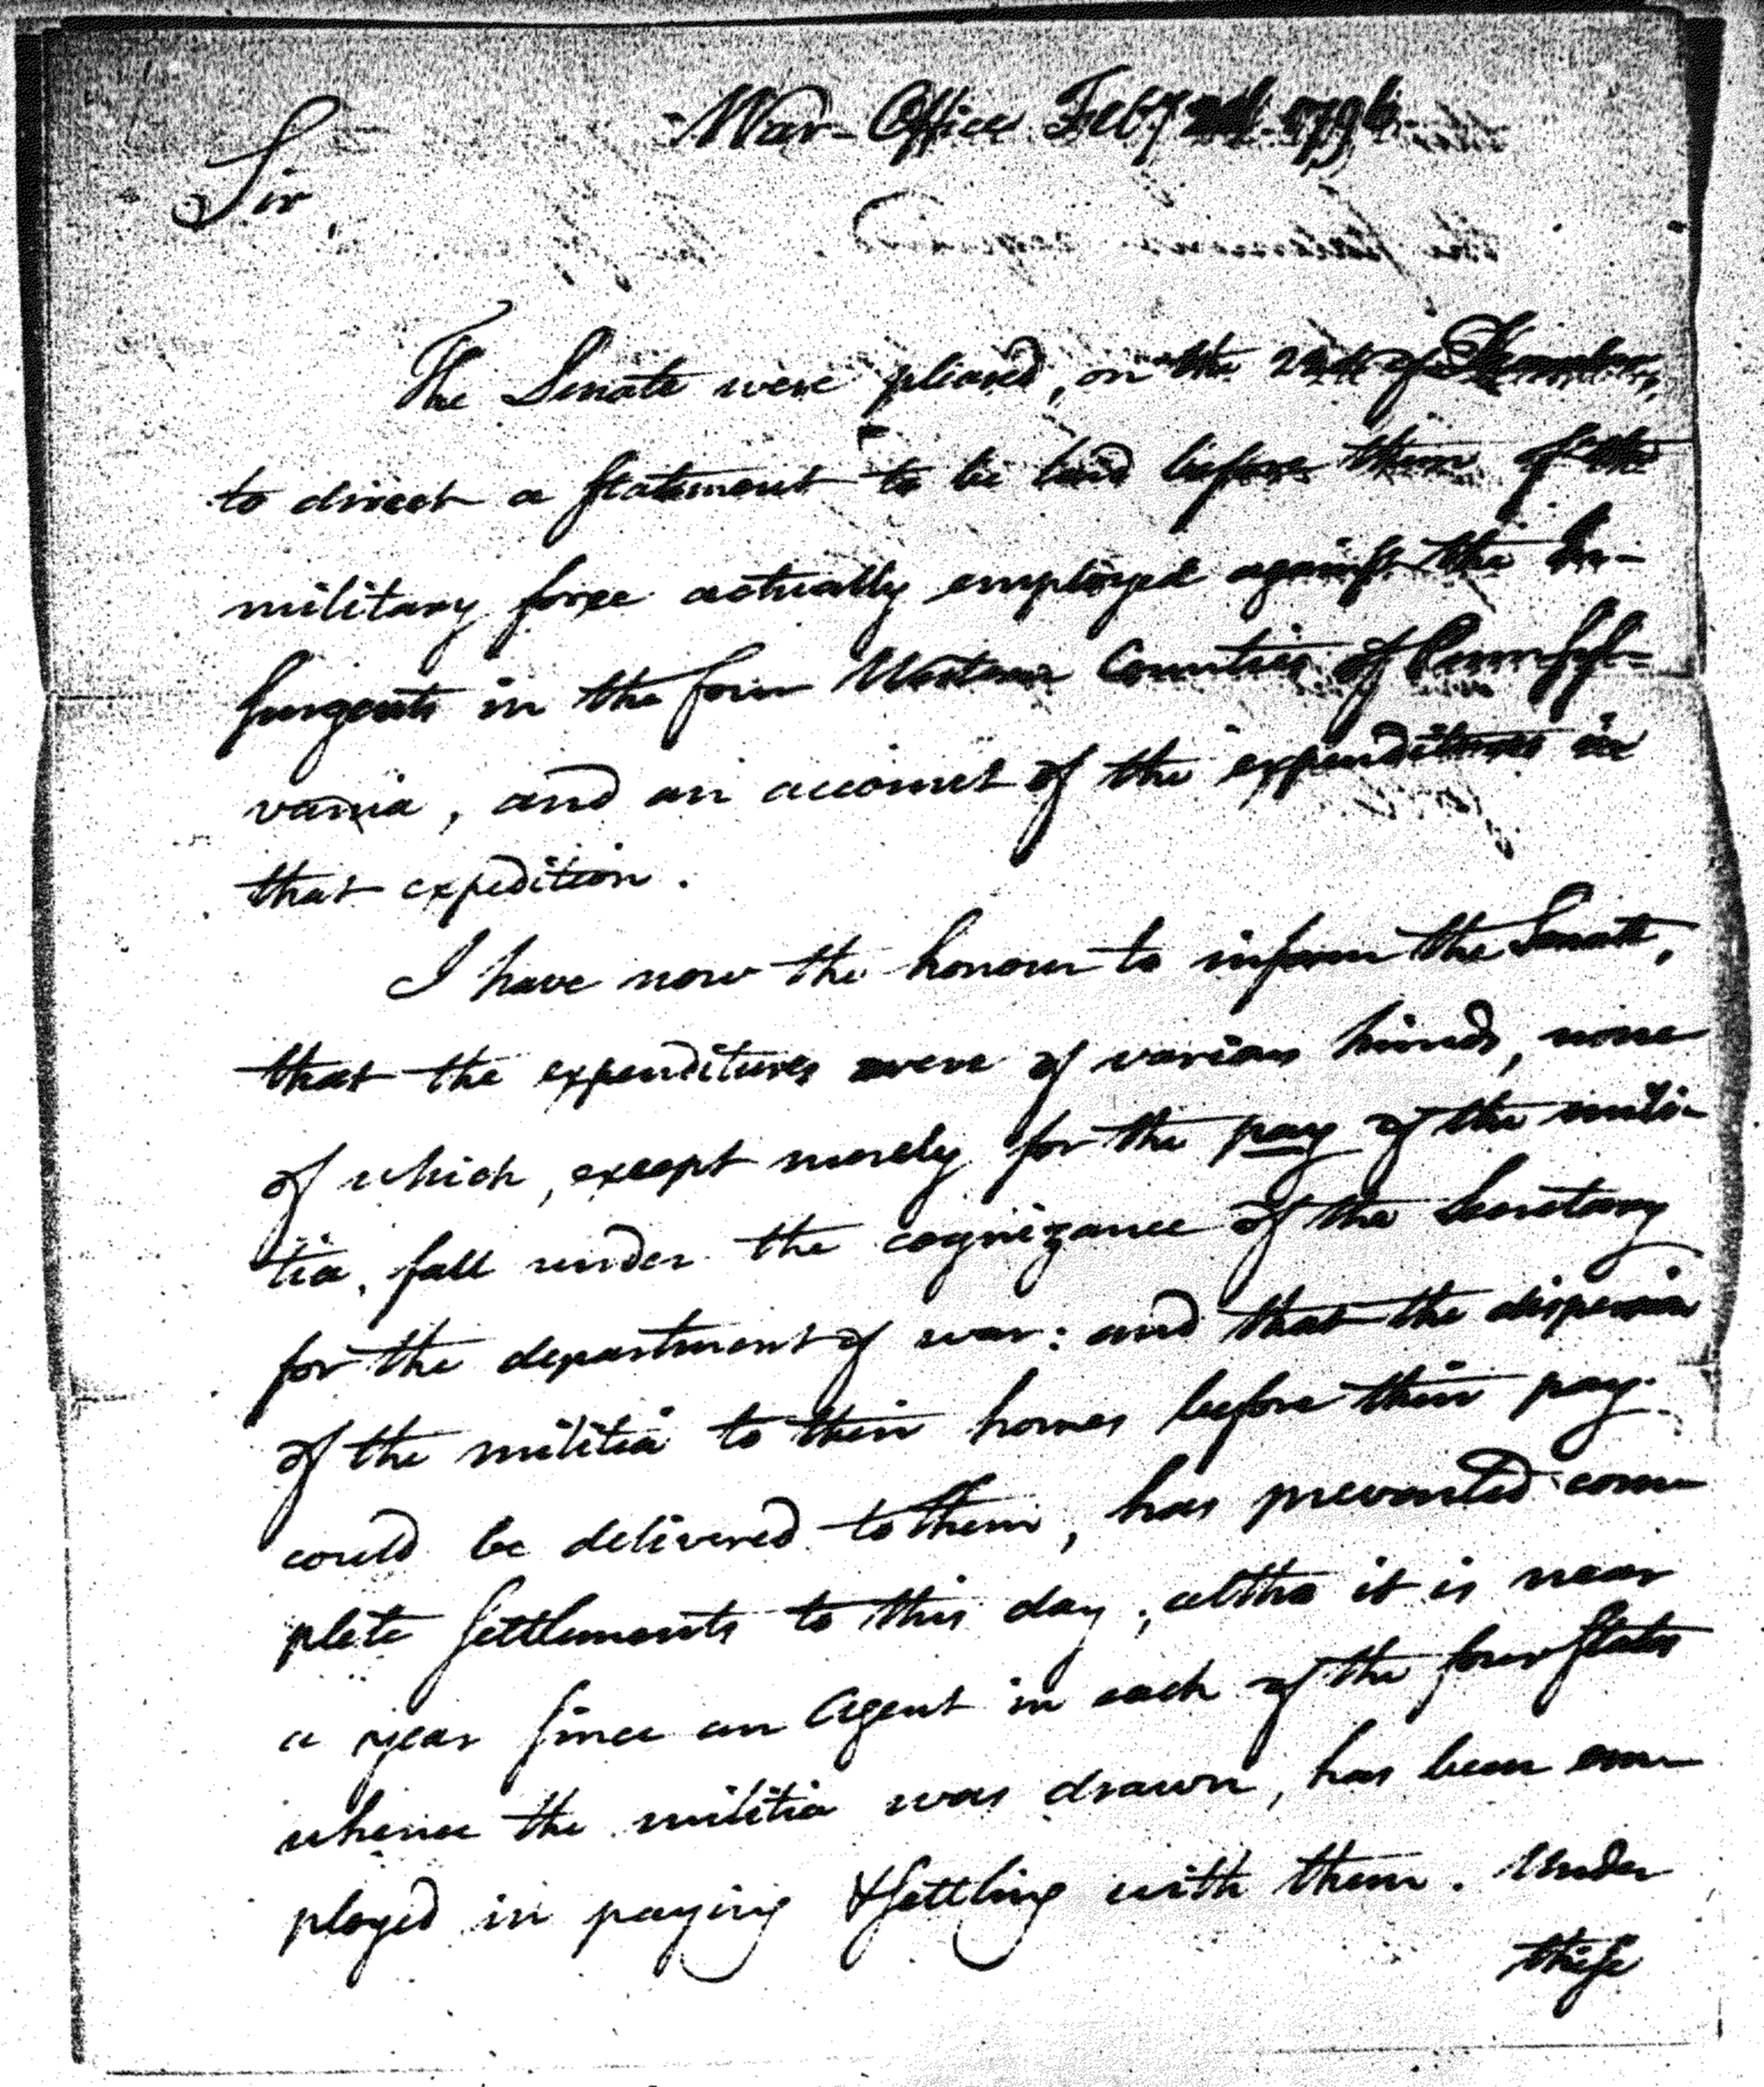 War-Office Feby 1796.
Sir
The Senate were pleased, on the of December,
to direct a statement to be laid before them of the
military force actually employed against the In-
surgents in the four Western Counties of Pennsyl-
vania, and an account of the expenditures in
that expedition.
I have now the honour to inform the Senate,
that the expenditures were of various kinds, none
of which, except merely for the pay of the mili-
tia, fall under the cognizance of the Secretary
for the department of war: and that the dispersion
of the militia to their homes before their pay
could be delivered to them, has prevented com-
plete settlements to this day, altho it is near
a year since an Agent in each of the four States
whence the militia was drawn, has been em-
ployed in paying & settling with them. Under
these